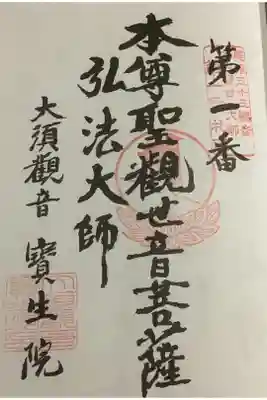 第一番
本尊聖觀世音菩薩
弘法大師
大須觀音
寶生院